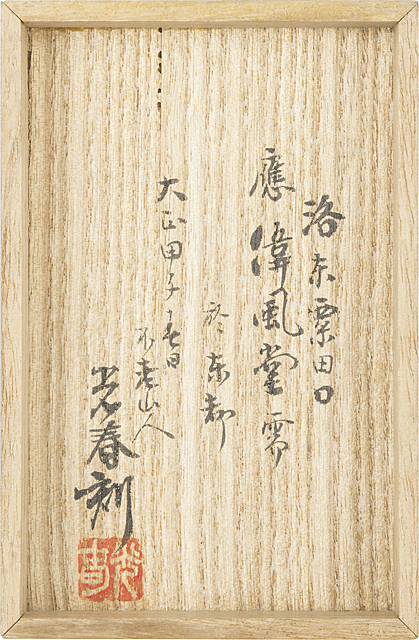 洛东粟田口
應偉風堂需
於东都
大正甲子春日
不老山人
光春刻